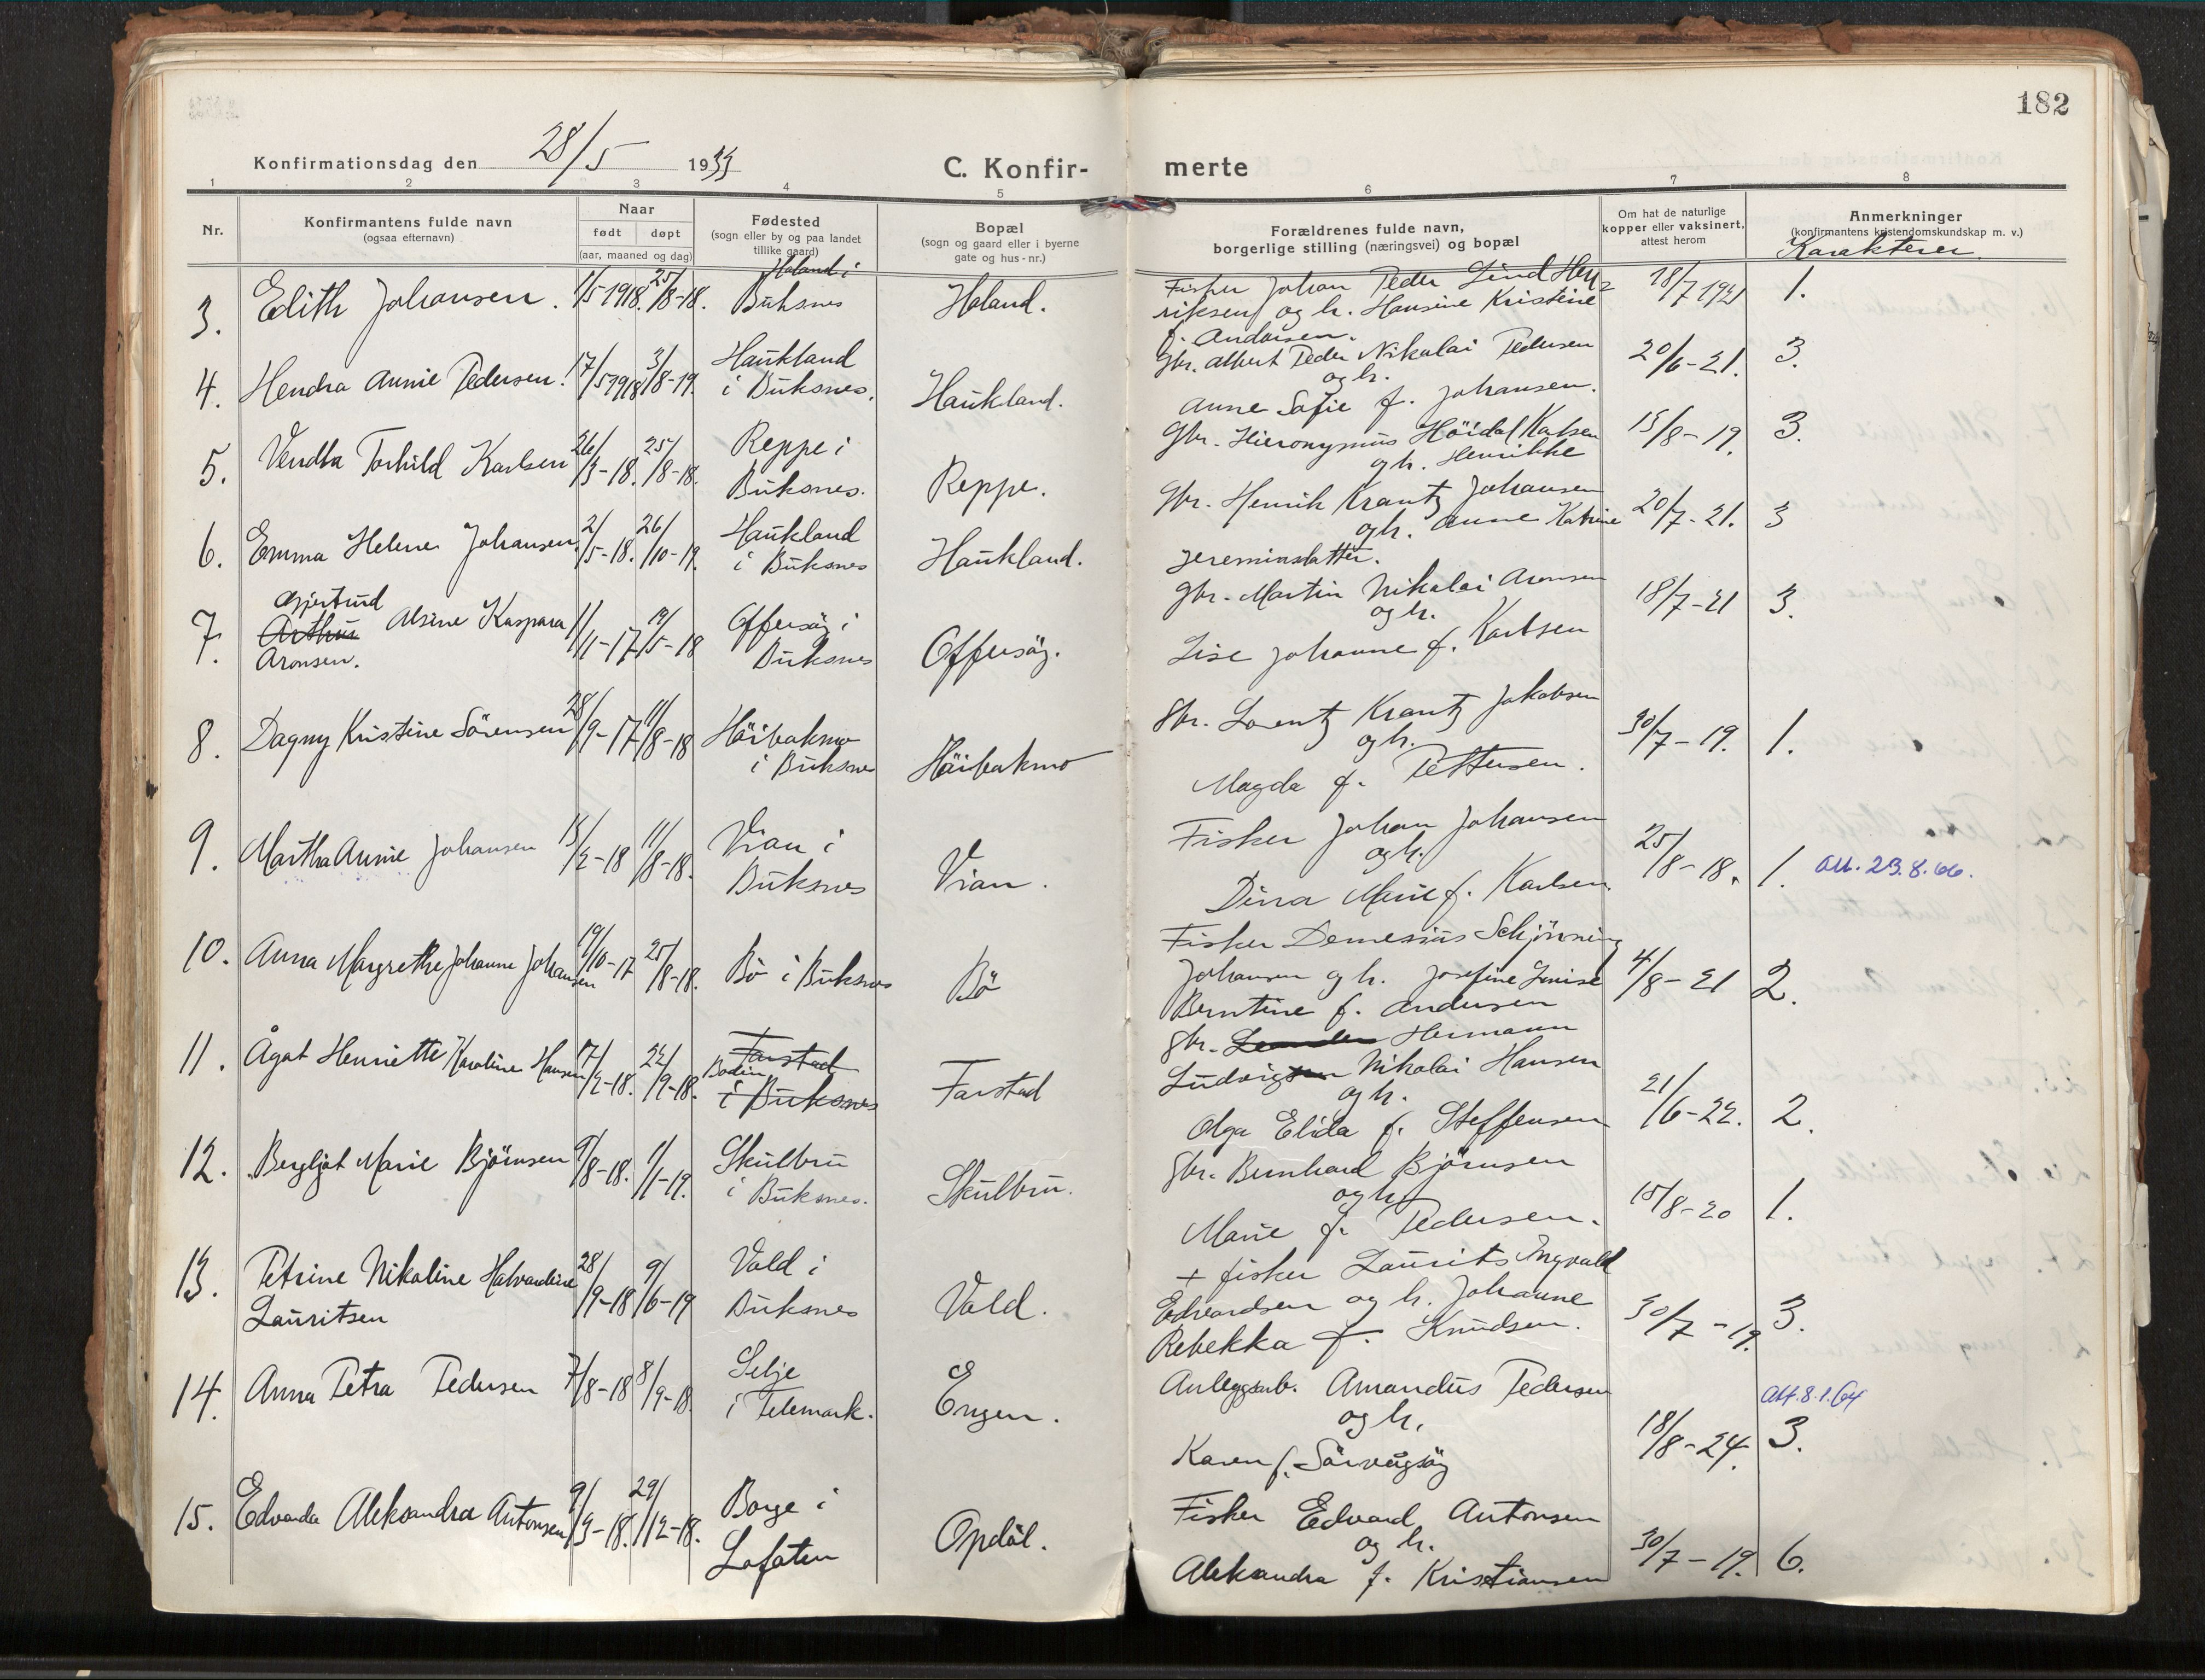 182
Konfirmationsdag den 28/5 1933 C. Konfirmerte
1 2 3 4 5 6 7 8
Nr.
Konfirmantens fulde navn
(ogsaa efternavn)
Naar
født døpt
(aar, maaned og dag)
Fødested
(sogn eller by og paa landet
tillike gaard)
Bopæl
(sogn og gaard eller i byerne
gate og hus-nr.)
Forældrenes fulde navn,
borgerlige stilling (næringsvei) og bopæl
Om hat de naturlige
kopper eller vaksinert,
attest herom
Anmerkninger
(konfirmantens kristendomskundskap m. v.)
Karakterer.
3. Edith Johansen. 1/5 1918. 25/8-18.
Holand i
Buksnes
Holand.
Fisker Johan Peder Lind Hen-
riksen og h. Hansine Kristine
f. Andorsen.
18/7 1921 1.
4. Hendra Annie Pedersen. 17/5 1918 3/8-19.
Haukland
i Buksnes.
Haukland.
Gbr. Albert Peder Nikolai Pedersen
og h.
Anne Sofie f. Johansen.
20/6-21. 3.
5. Vendla Torhild Karlsen 26/3-18. 25/8-18.
Reppe i
Buksnes.
Reppe.
Gbr. Hieronymus Höidal Karlsen
og h. Henrikke
15/8-19. 3.
6. Emma Helene Johansen. 2/5-18. 26/10-19.
Haukland
i Buksnes
Haukland.
Gbr. Henrik Krantz Johansen
og h. Anne Katrine
Jeremiasdatter.
20/7-21. 3
7. Gjertrud
Arthus Alsine Kaspara
Aronsen.
1/11-17 19/5-18
Offersöy i
Buksnes
Offersöy.
Gbr. Martin Nikolai Aronsen
og h.
Lise Johanne f. Karlsen
18/7-21 3.
8. Dagny Kristine Sörensen 28/9-17 11/8-18
Höibakmo
i Buksnes
Höibakmo
Gbr. Lorentz Krantz Jakobsen
og h.
Magda f. Pettersen.
30/7-19. 1.
9. Martha Annie Johansen 15/2-18 11/8-18.
Vian i
Buksnes
Vian.
Fisker Johan Johansen
og h.
Dina Marie f. Karlsen.
25/8-18. 1. Att. 23.8.66.
10. Anna Margrethe Johanne Johansen 19/10-17 25/8-18.
Bö i Buksnes
Bö
Fisker Demesius Schjönning
Johansen og h. Josefine Lovise
Berntine f. Andersen
4/8-21 2.
11. Ågot Henriette Karoline Hansen 17/2-18. 22/9-18.
Farstad
Bodin
i Buksnes
Farstad
Gbr. Hermann
Ludvig Nikolai Hansen
og h.
Olga Elida f. Steffensen
21/6-22. 2.
12. Bergljot Marie Björnsen 9/8-18. 1/1-19.
Skulbru
i Buksnes.
Skulbru.
Gbr. Bernhard Björnsen
og h.
Marie f. Pedersen.
15/8-20 1.
13. Petrine Nikoline Halvardine
Lauritsen
28/9-18 9/6-19
Vold i
Buksnes
Vold.
+ fisker Laurits Ingvald
Edvardsen og h. Johanne
Rebekka f. Knudsen.
30/7-19. 3.
14. Anna Petra Pedersen 7/8-18 8/9-18.
Selje
i Telemark.
Engen.
Anleggsarb. Amandus Pedersen
og h.
Karen f. Sörvågsöy
18/8-24. 3. Att. 8.1.64
15. Edvarda Aleksandra Antonsen 9/3-18. 29/12-18.
Borge i
Lofoten
Opdöl.
Fisker Edvard Antonsen
og h.
Aleksandra f. Kristiansen
30/7-19. 6.